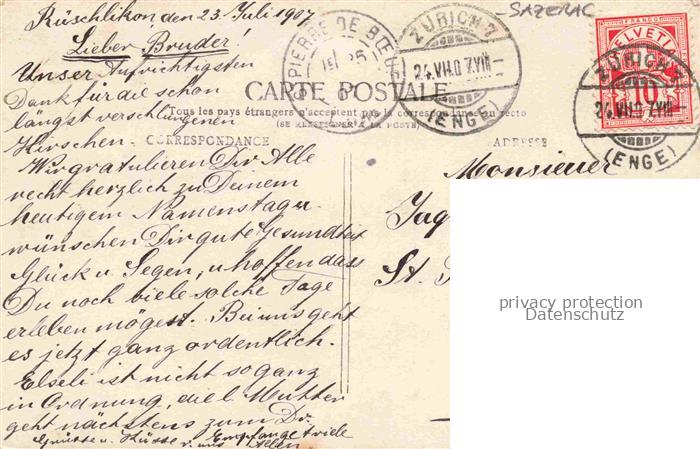 Rüschlikon den 23. Juli 1907
Lieber Bruder!
Unser Aufrichtigsten
Dank für die schon
längst verschlungenen
Kirschen.
Wir gratulieren Dir Alle
recht herzlich zu Deinem
heutigem Namenstag u.
wünschen Dir gute Gesundheit
Glück u. Segen, u. hoffen dass
Du noch viele solche Tage
erleben mögest. Bei uns geht
es jetzt ganz ordentlich.
Elseli ist nicht so ganz
in Ordnung, die l. Mutter
geht nächstens zum Dr.
Grüsse u. Küsse v. uns Allen
Empfange viele
CARTE POSTALE
Tous les pays étrangers n'acceptent pas la correspondance au recto
(SE RENSEIGNER A LA POSTE)
CORRESPONDANCE
ADRESSE
PIERRE DE BŒUF
25
ZÜRICH 7
24.VII.07.VIII
(ENGE)
SAZERAC
FRANCO
HELVETIA
10
ZÜRICH 7
24.VII.07.VIII
(ENGE)
Monsieur
Jag
St.
privacy protection
Datenschutz